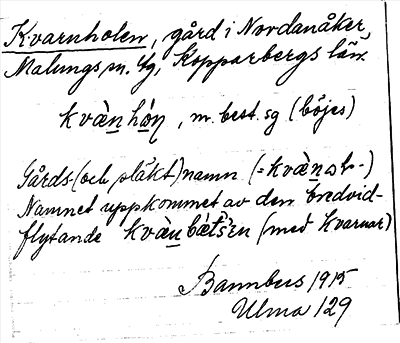 Kvarnholen, gård i Nordanåker,
Malungs sn. Kopparbergs län.
kvæ̀n hón, m. best. sg (böjes)
Gårds (och släkt) namn (=kvæ̀nst-)
Namnet uppkommet av den bredvid-
flytande kvæ̀n bétsen (med kvarnar)
Bannbers 1915
Ulma 129